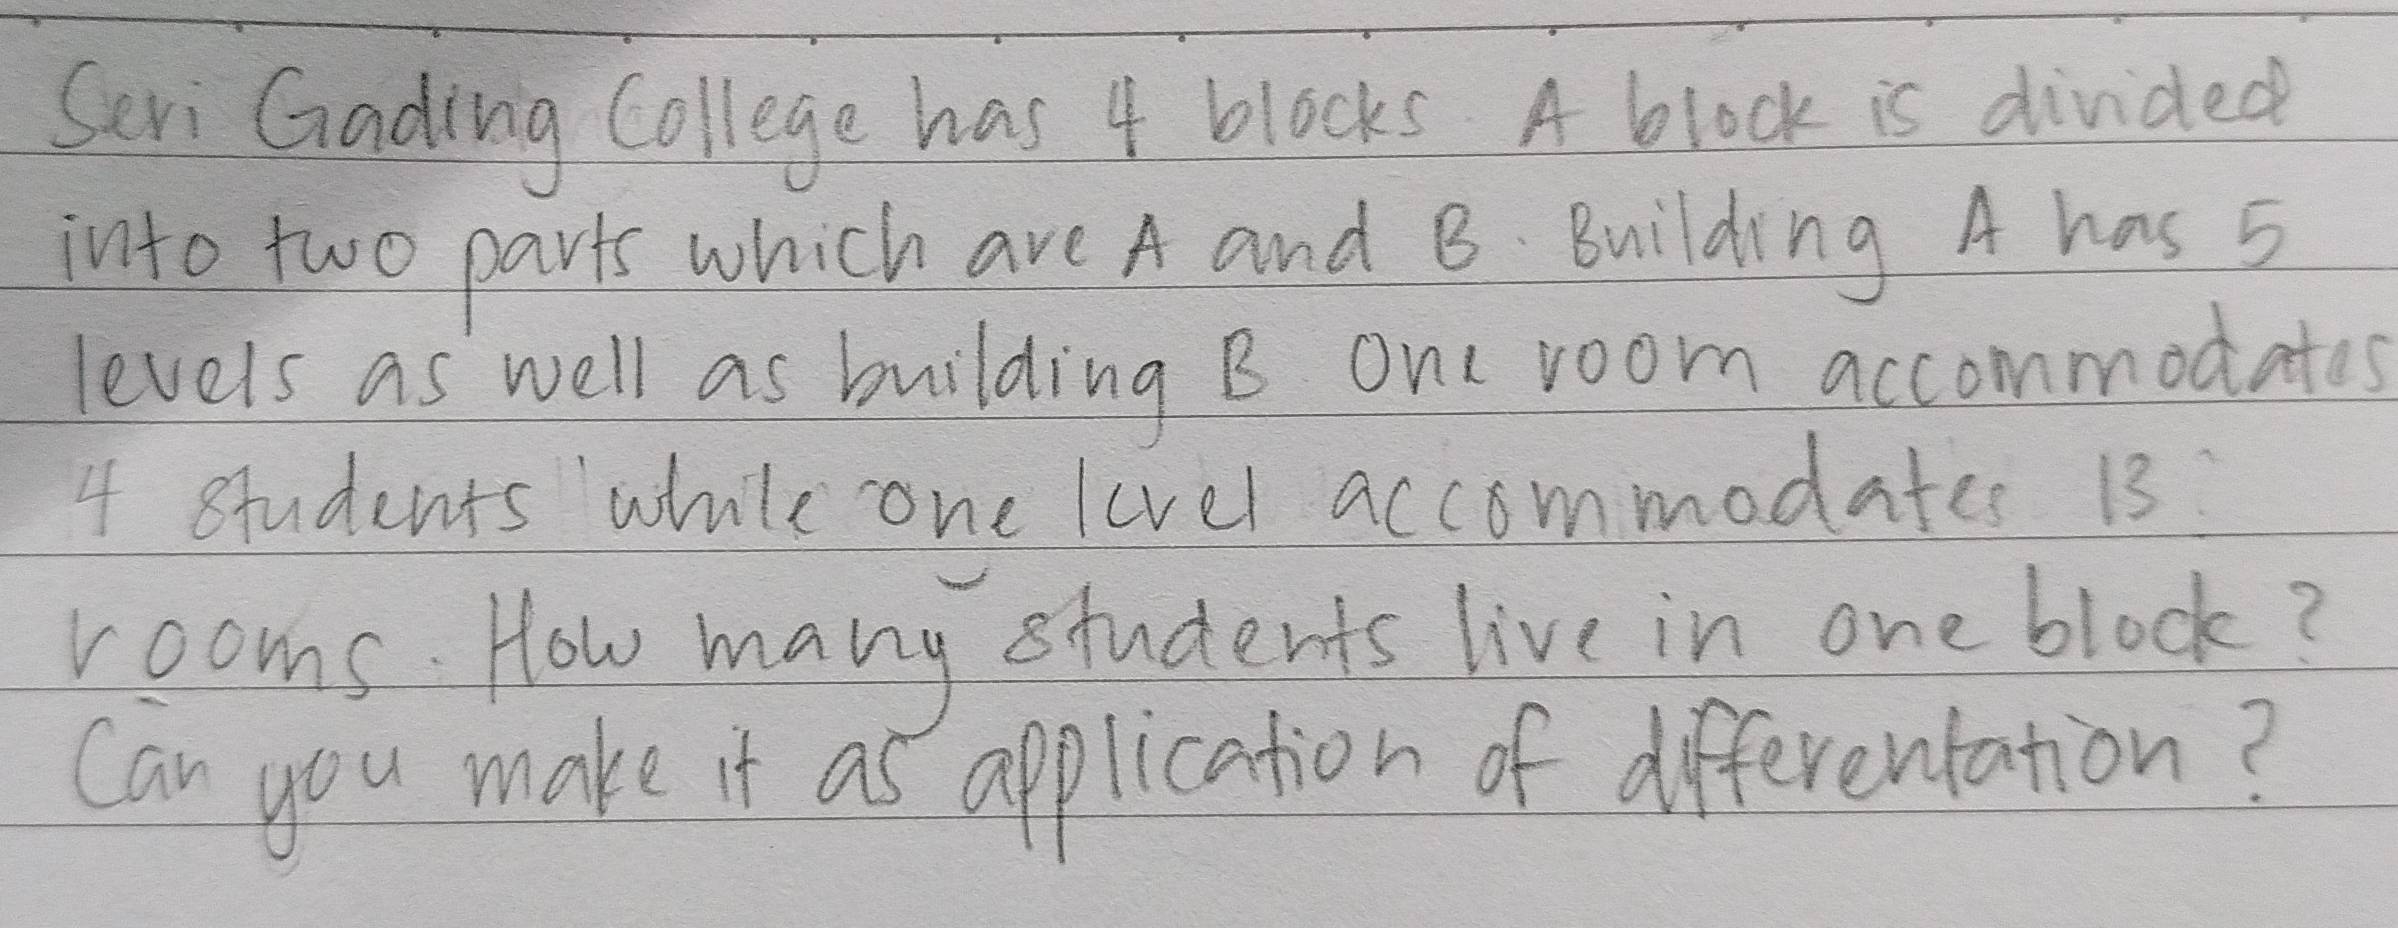 Seri Gading College has 4 blocks. A block is divided
into two parts which are A and B. Building A has 5
levels as well as building B. One room accommodates
4 students while one level accommodates 13
rooms. How many students live in one block?
Can you make it as application of differentation?